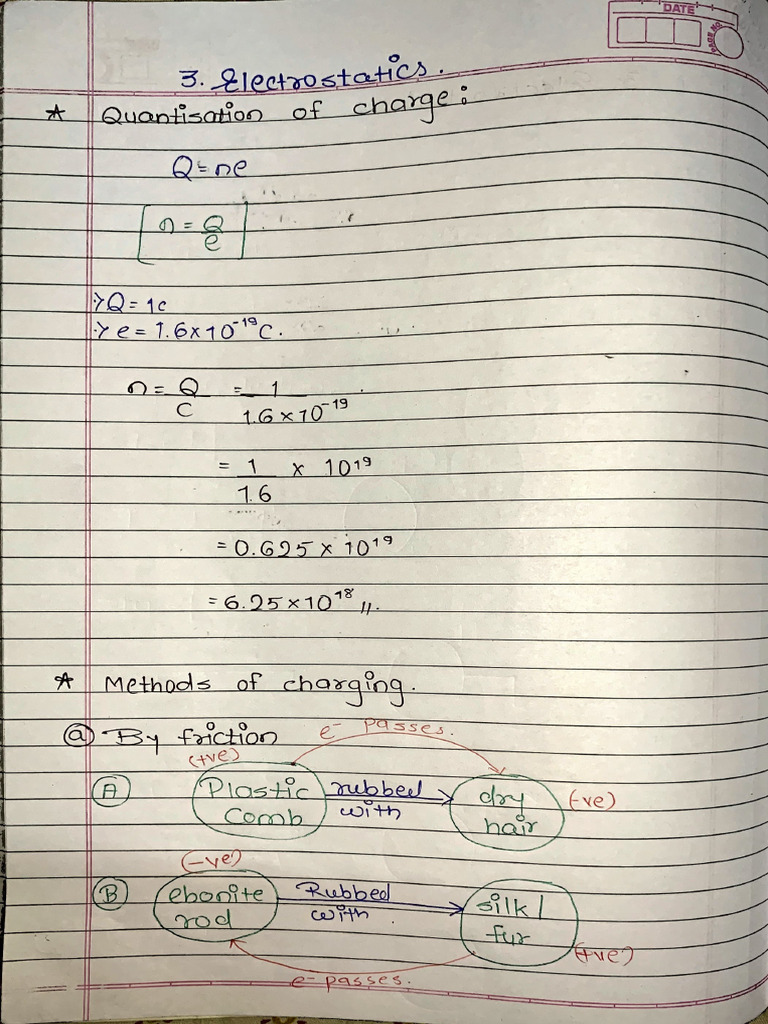 DATE
PAGE NO
3. Electrostatics.
* Quantisation of charge:
Q = ne
n = Q/e
> Q = 1c
> e = 1.6 × 10⁻¹⁹ C.
n = Q/C = 1/1.6 × 10⁻¹⁹
= 1/1.6 × 10¹⁹
= 0.625 × 10¹⁹
= 6.25 × 10¹⁸ //.
* Methods of charging.
(a) By friction
e⁻ passes.
(+ve)
(A) Plastic comb rubbed with dry hair (-ve)
(-ve)
(B) ebonite rod Rubbed with silk / fur (+ve)
e⁻ passes.